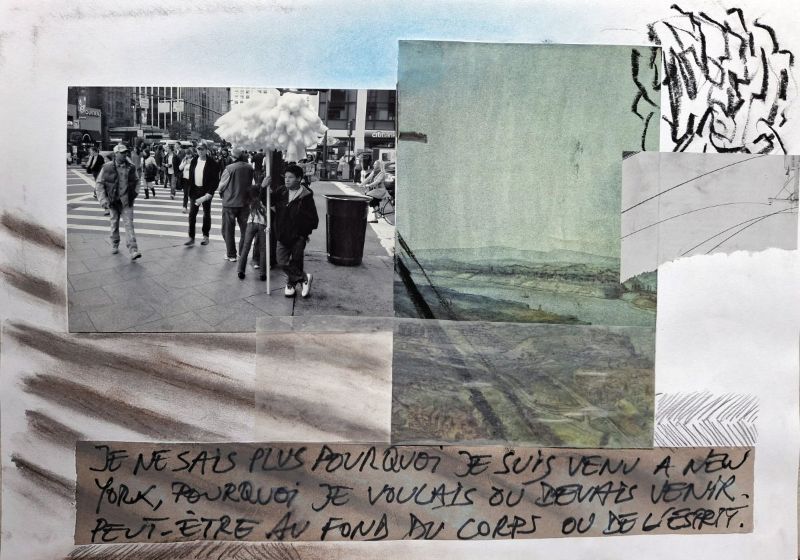 JE NE SAIS PLUS POURQUOI JE SUIS VENU A NEW
YORK, POURQUOI JE VOULAIS OU DEVAIS VENIR.
PEUT-ÊTRE AU FOND DU CORPS OU DE L'ESPRIT.